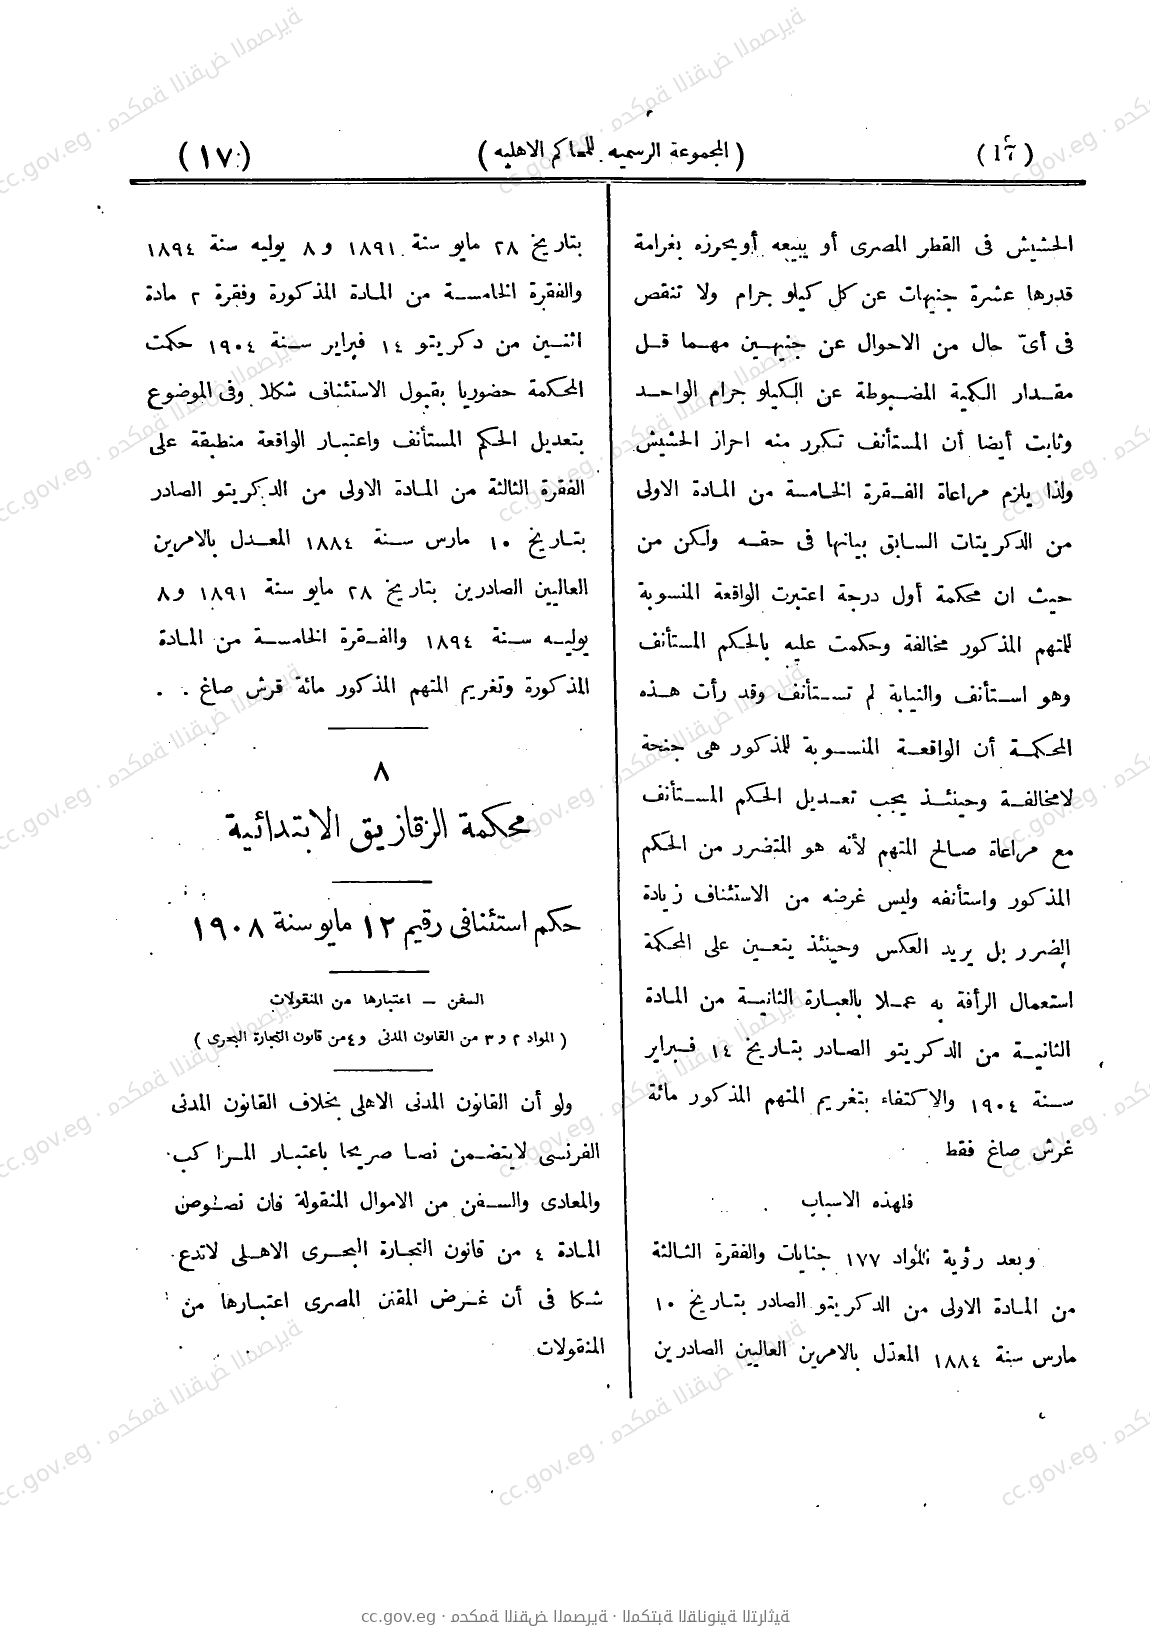 (١٦)
(المجموعة الرسمية للمحاكم الاهلية)
(١٧)
الحشيش فى القطر المصرى أو يبيعه أو يحرزه بغرامة
قدرها عشرة جنيهات عن كل كيلو جرام ولا تنقص
فى أىّ حال من الاحوال عن جنيهين مهما قل
مقدار الكمية المضبوطة عن الكيلو جرام الواحد
وثابت أيضا أن المستأنف تكرر منه احراز الحشيش
ولذا يلزم مراعاة الفقرة الخامسة من المادة الاولى
من الدكريتات السابق بيانها فى حقه ولكن من
حيث ان محكمة أول درجة اعتبرت الواقعة المنسوبة
للمتهم المذكور مخالفة وحكمت عليه بالحكم المستأنف
وهو استأنف والنيابة لم تستأنف وقد رأت هذه
المحكمة أن الواقعة المنسوبة للمذكور هى جنحة
لامخالفة وحينئذ يجب تعديل الحكم المستأنف
مع مراعاة صالح المتهم لأنه هو المتضرر من الحكم
المذكور واستأنفه وليس غرضه من الاستئناف زيادة
الضرر بل يريد العكس وحينئذ يتعين على المحكمة
استعمال الرأفة به عملا بالعبارة الثانية من المادة
الثانية من الدكريتو الصادر بتاريخ ١٤ فبراير
سنة ١٩٠٤ والاكتفاء بتغريم المتهم المذكور مائة
غرش صاغ فقط
فلهذه الاسباب
وبعد رؤية المواد ١٧٧ جنايات والفقرة الثالثة
من المادة الاولى من الدكريتو الصادر بتاريخ ١٠
مارس سنة ١٨٨٤ المعدّل بالامرين العاليين الصادرين
بتاريخ ٢٨ مايو سنة ١٨٩١ و ٨ يوليه سنة ١٨٩٤
والفقرة الخامسة من المادة المذكورة وفقرة ٢ مادة
اثنين من دكريتو ١٤ فبراير سنة ١٩٠٤ حكمت
المحكمة حضوريا بقبول الاستئناف شكلا وفى الموضوع
بتعديل الحكم المستأنف واعتبار الواقعة منطبقة على
الفقرة الثالثة من المادة الاولى من الدكريتو الصادر
بتاريخ ١٠ مارس سنة ١٨٨٤ المعدل بالامرين
العاليين الصادرين بتاريخ ٢٨ مايو سنة ١٨٩١ و ٨
يوليه سنة ١٨٩٤ والفقرة الخامسة من المادة
المذكورة وتغريم المتهم المذكور مائة قرش صاغ . .
٨
محكمة الزقازيق الابتدائية
حكم استئنافى رقيم ١٢ مايو سنة ١٩٠٨
السفن – اعتبارها من المنقولات
(المواد ٢ و ٣ من القانون المدنى و ٤ من قانون التجارة البحرى)
ولو أن القانون المدنى الاهلى بخلاف القانون المدنى
الفرنسى لايتضمن نصا صريحا باعتبار المراكب
والمعادى والسفن من الاموال المنقولة فان نصوص
المادة ٤ من قانون التجارة البحرى الاهلى لاتدع
شكا فى أن غرض المقنن المصرى اعتبارها من
المنقولات
cc.gov.eg · محكمة النقض المصرية · المكتبة القانونية التراثية